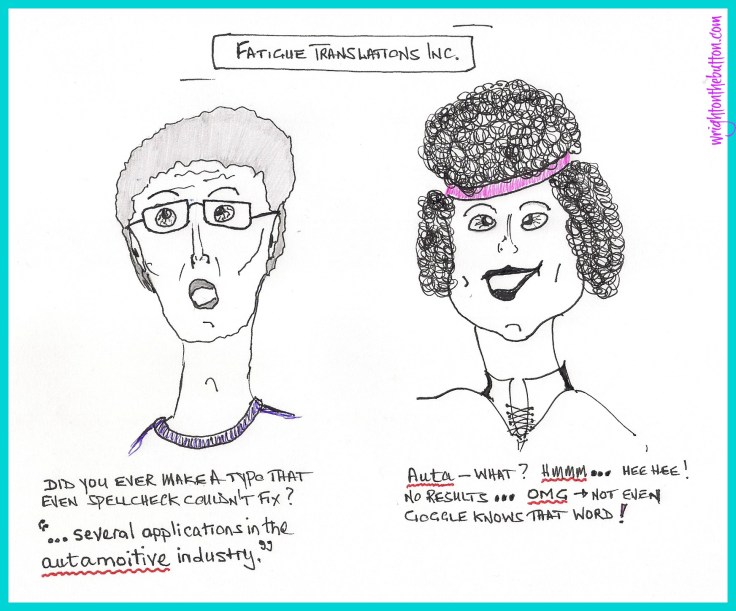 FATIGUE TRANSLATIONS INC.
wrightonthebutton.com
DID YOU EVER MAKE A TYPO THAT
EVEN SPELLCHECK COULDN'T FIX?
"... several applications in the
autamoitive industry."
Auta - WHAT? HMMM... HEE HEE!
NO RESULTS ... OMG → NOT EVEN
GOGGLE KNOWS THAT WORD!